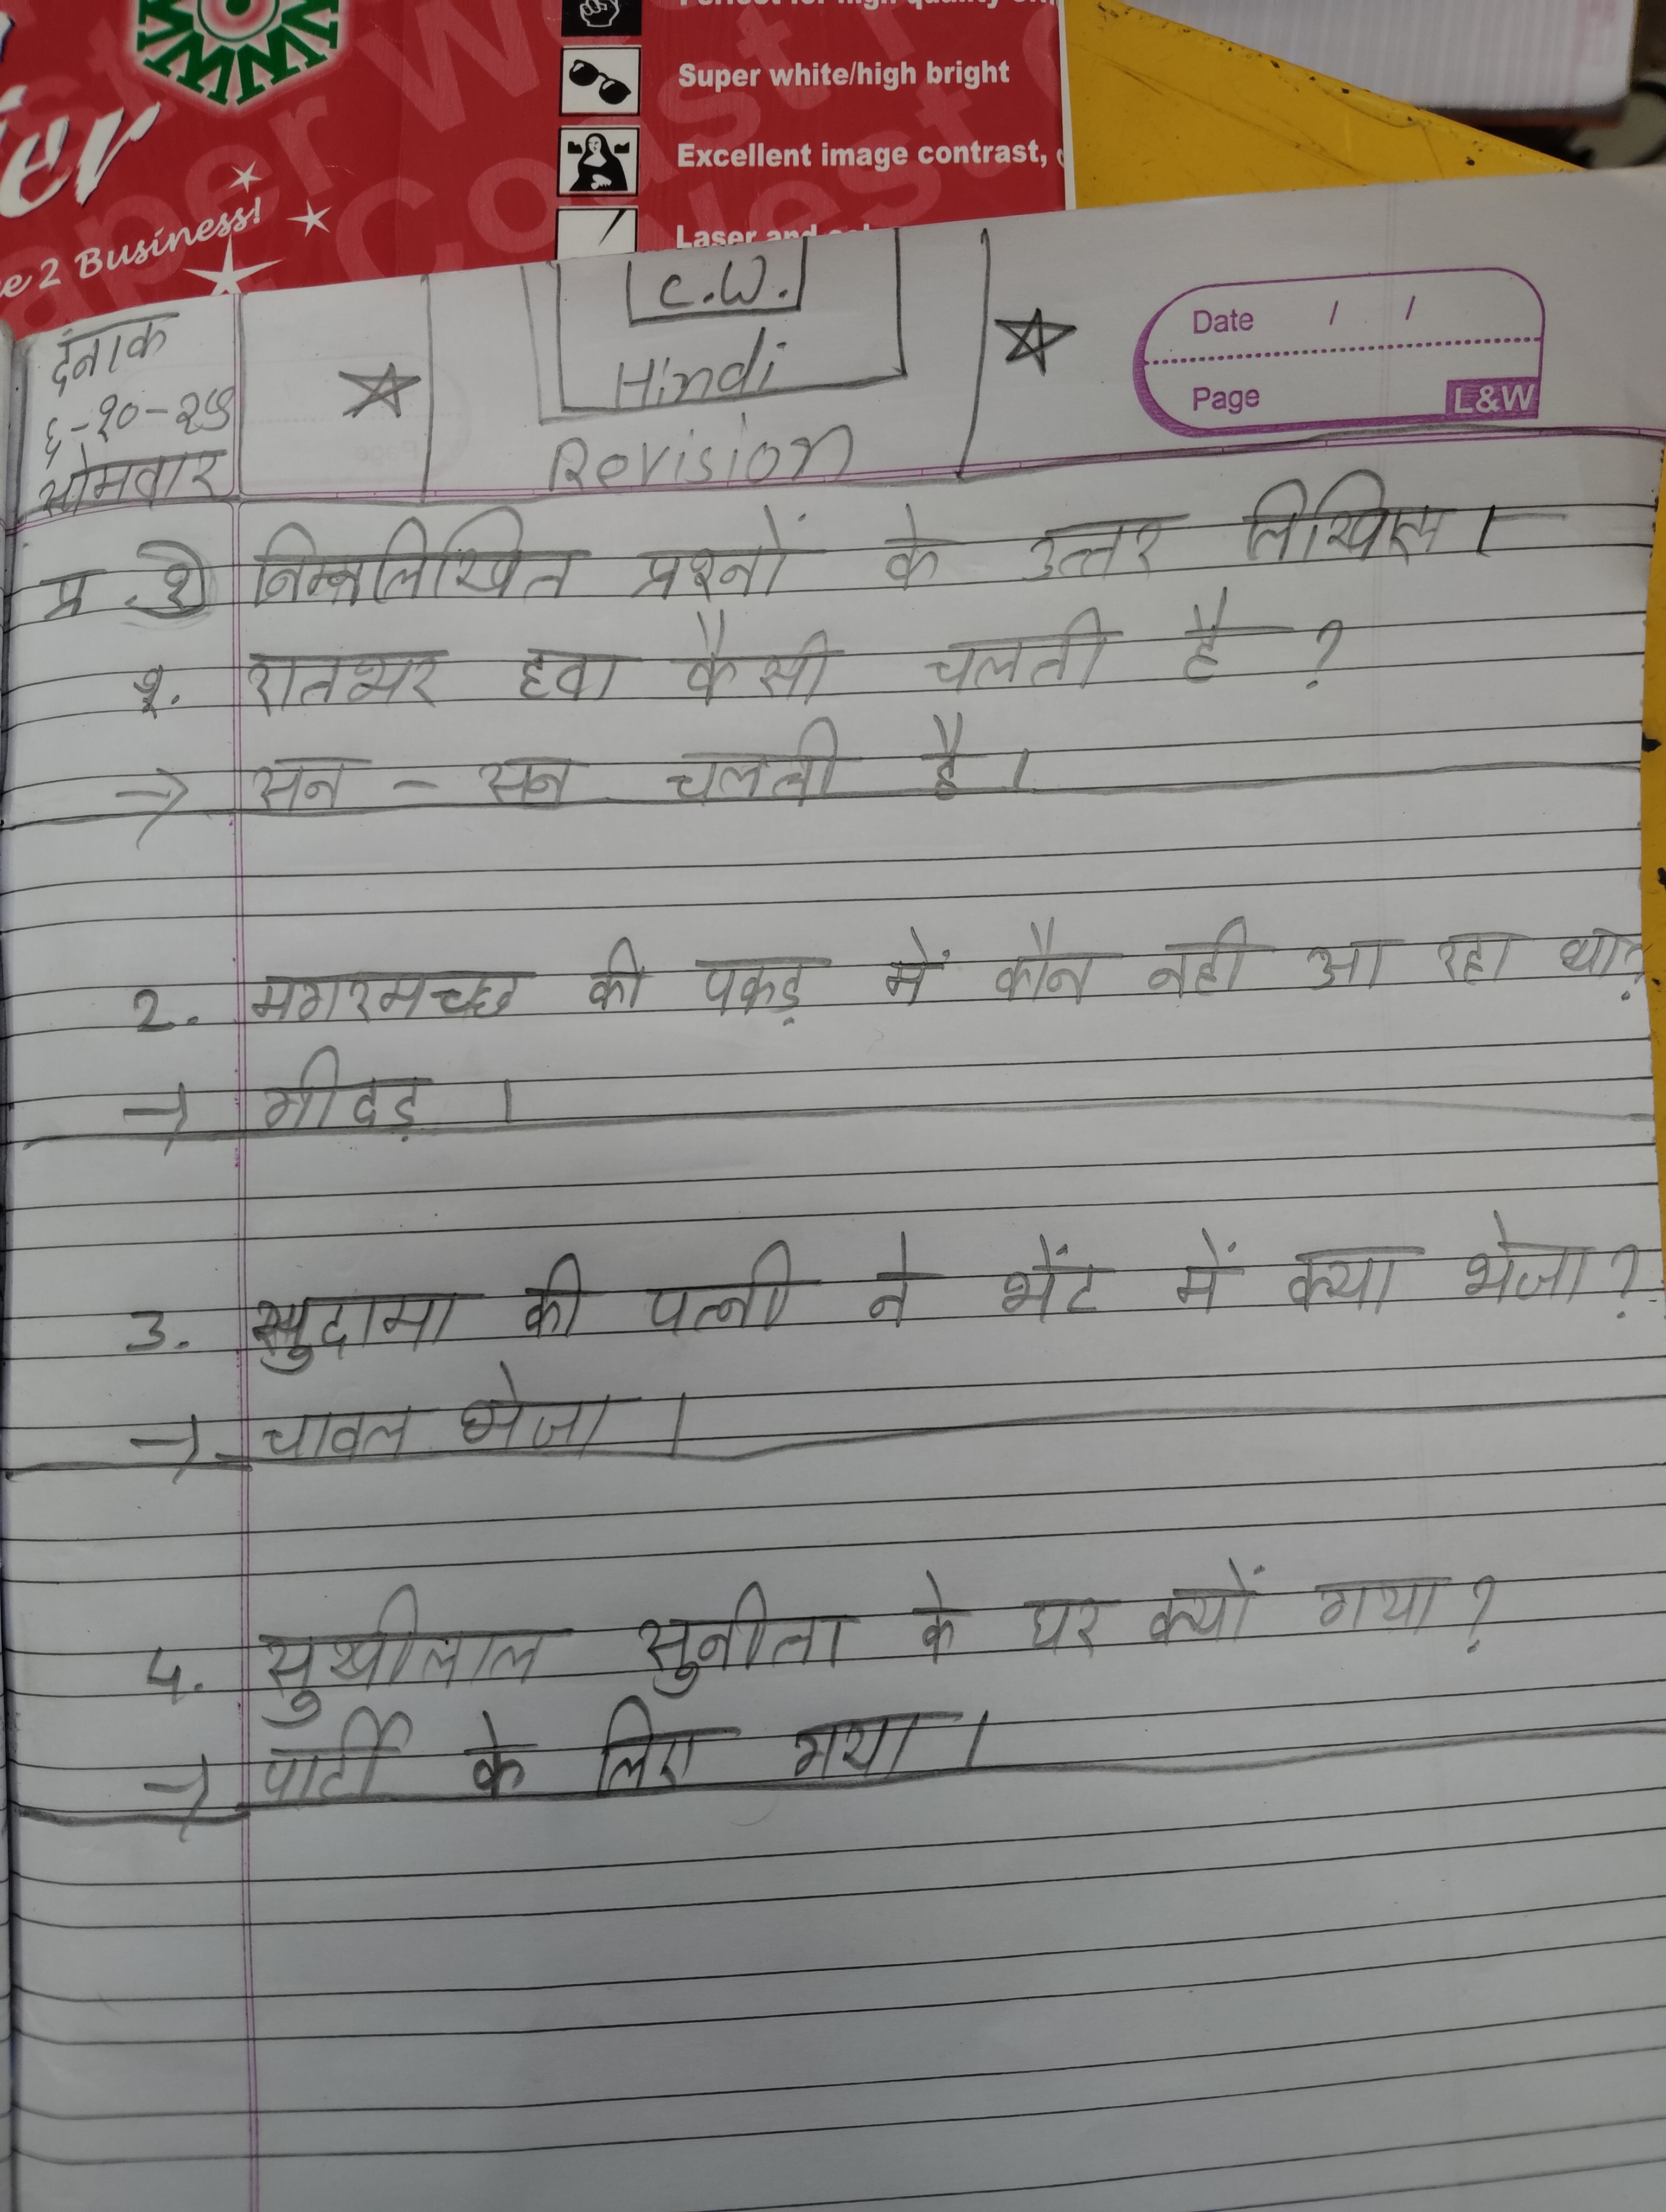 Super white/high bright
Excellent image contrast,
Laser and
2 Business!
C.W.
Hindi
Revision
Date / /
Page
L&W
दनाक
६-१०-२५
सोमवार
प्र १) निम्नलिखित प्रश्नों के उत्तर लिखिए।
१. रातभर हवा कैसी चलती है ?
→ सन - सन चलती है ।
2. मगरमच्छ की पकड़ में कौन नही आ रहा था?
→ गीदड़ ।
3. सुदामा की पत्नी ने भेंट में क्या भेजा ?
→ चावल भेजा ।
4. सुखीलाल सुनीता के घर क्यों गया ?
→ पार्टी के लिए गया ।